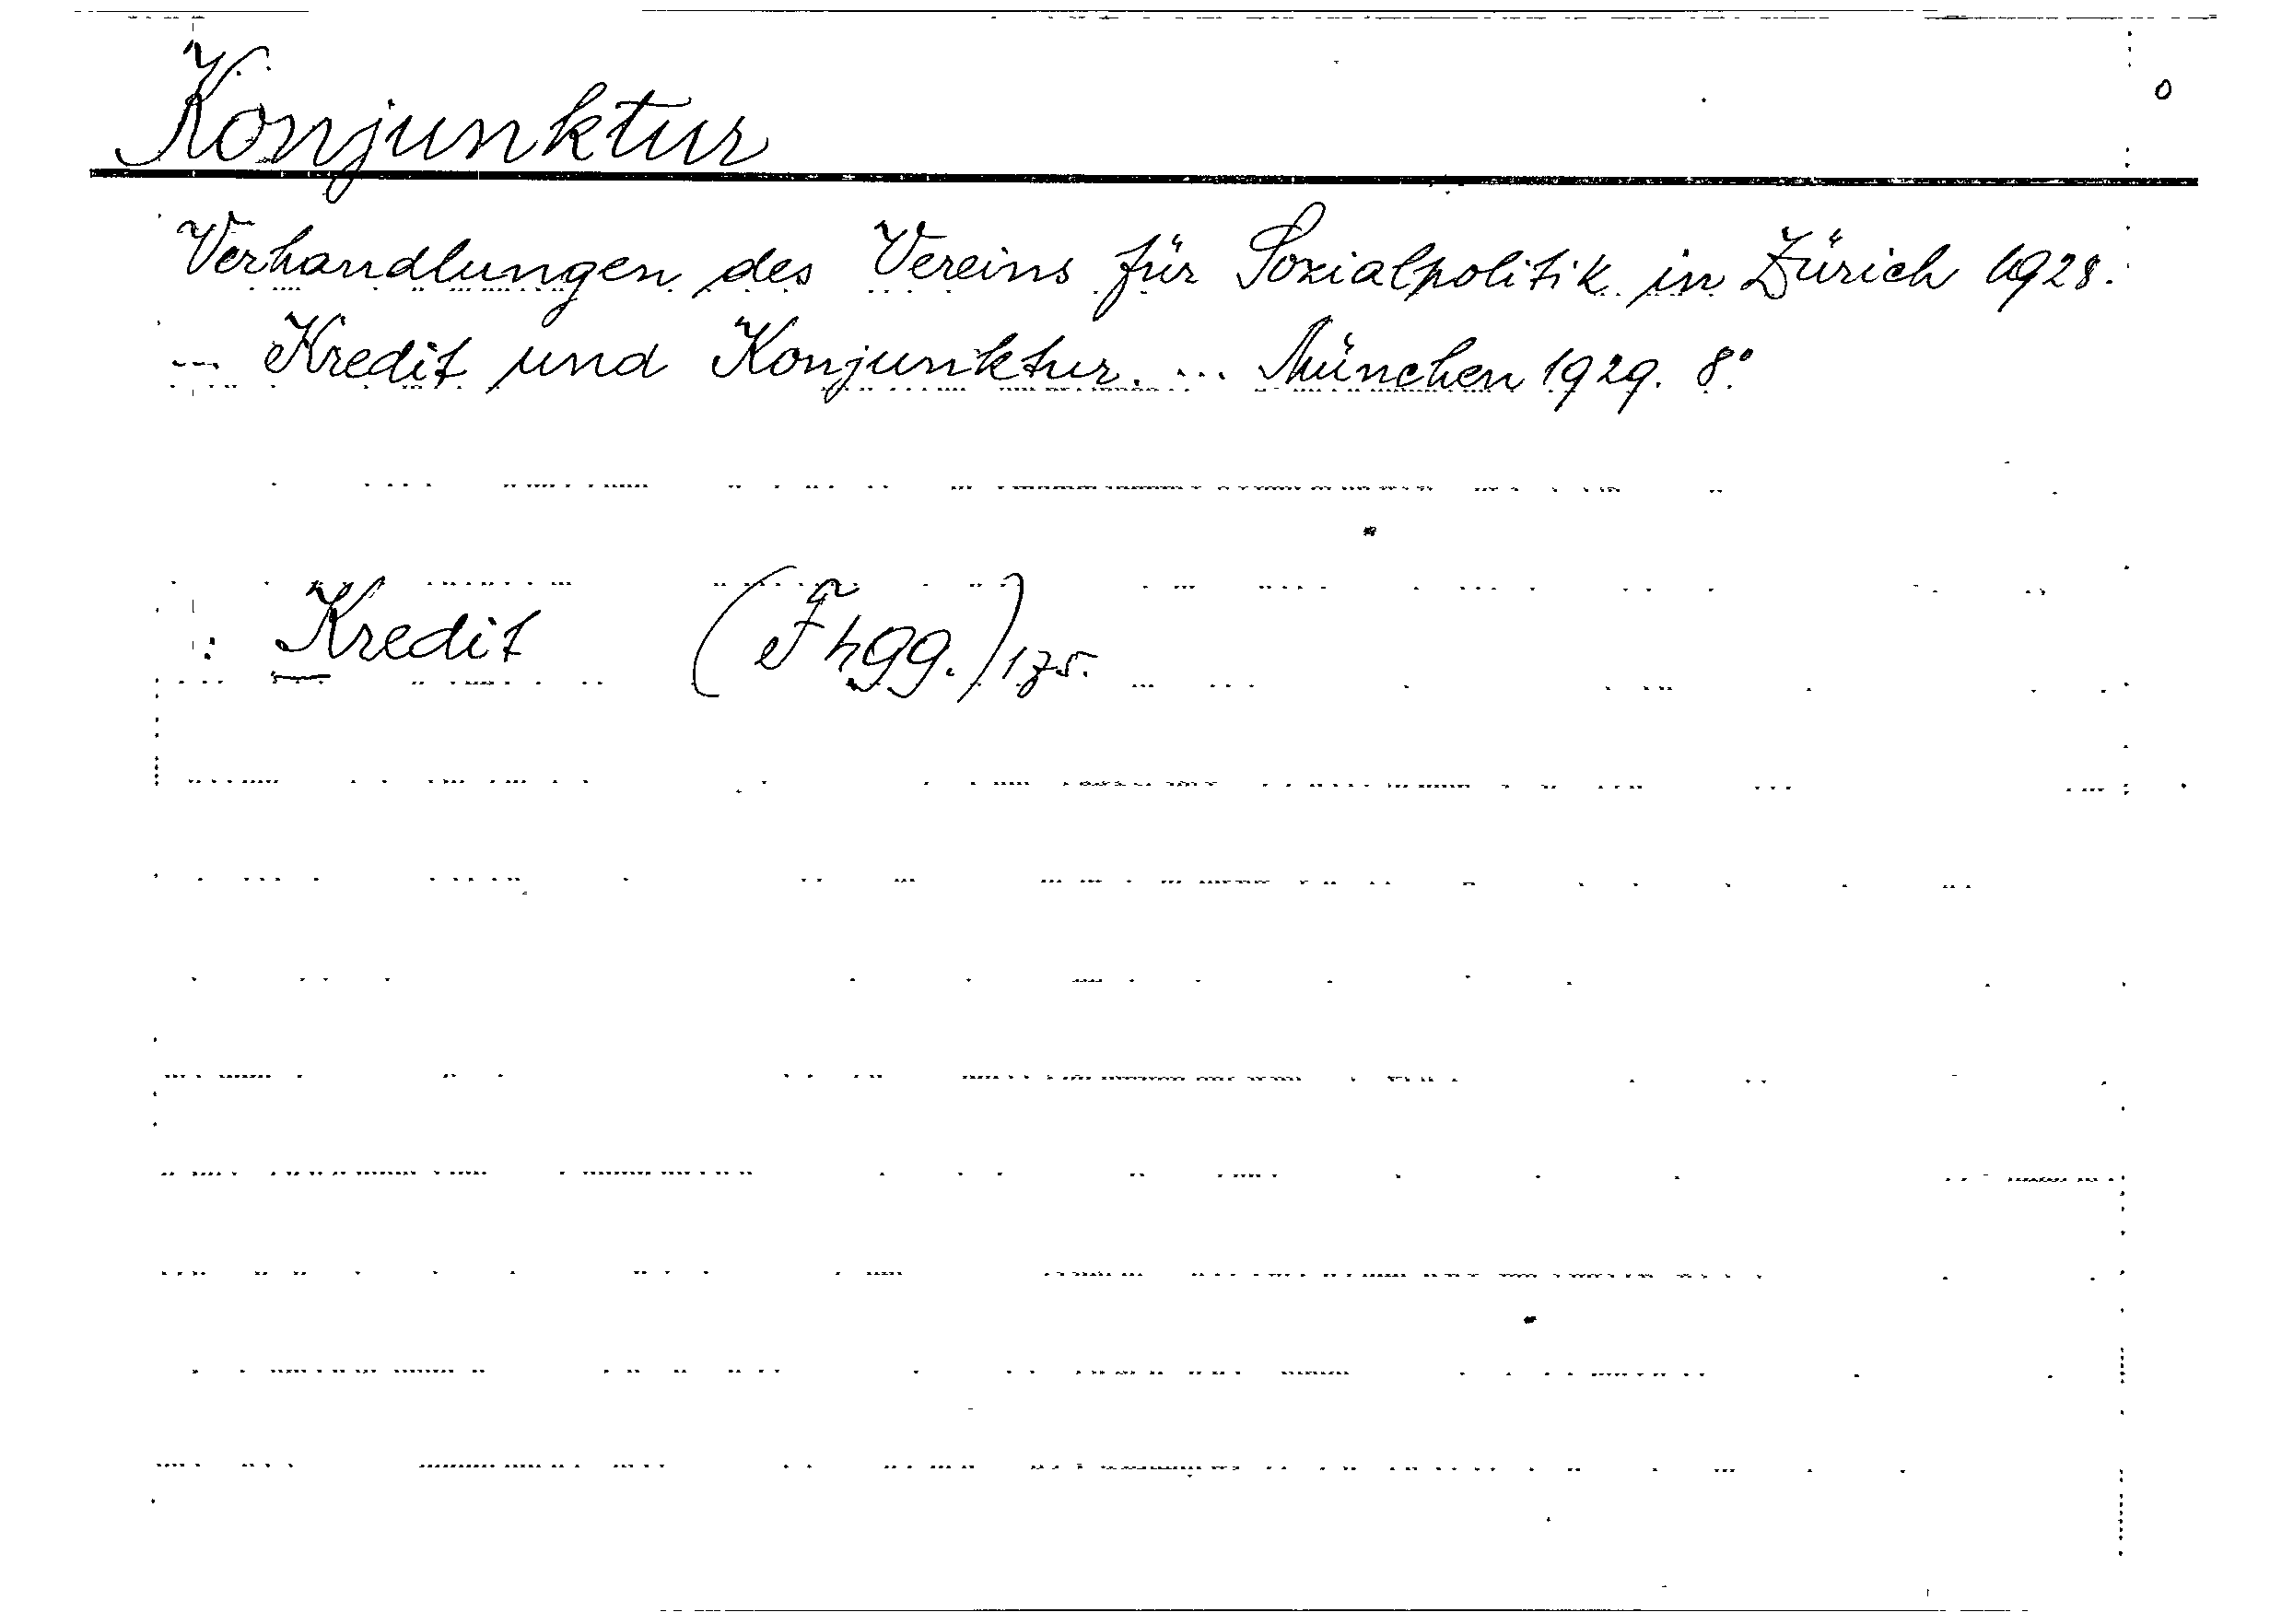 Konjunktur
Verhandlungen des Vereins für Sozialpolitik in Zürich 1928.
... Kredit und Konjunktur. ... München 1929. 8°.
: Kredit (F hgg.) 175.